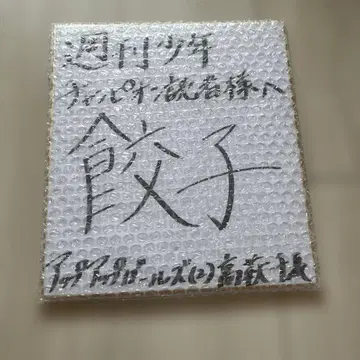 週刊少年
チャンピオン読者様へ
餃子
アップアップガールズ(2)高萩千夏